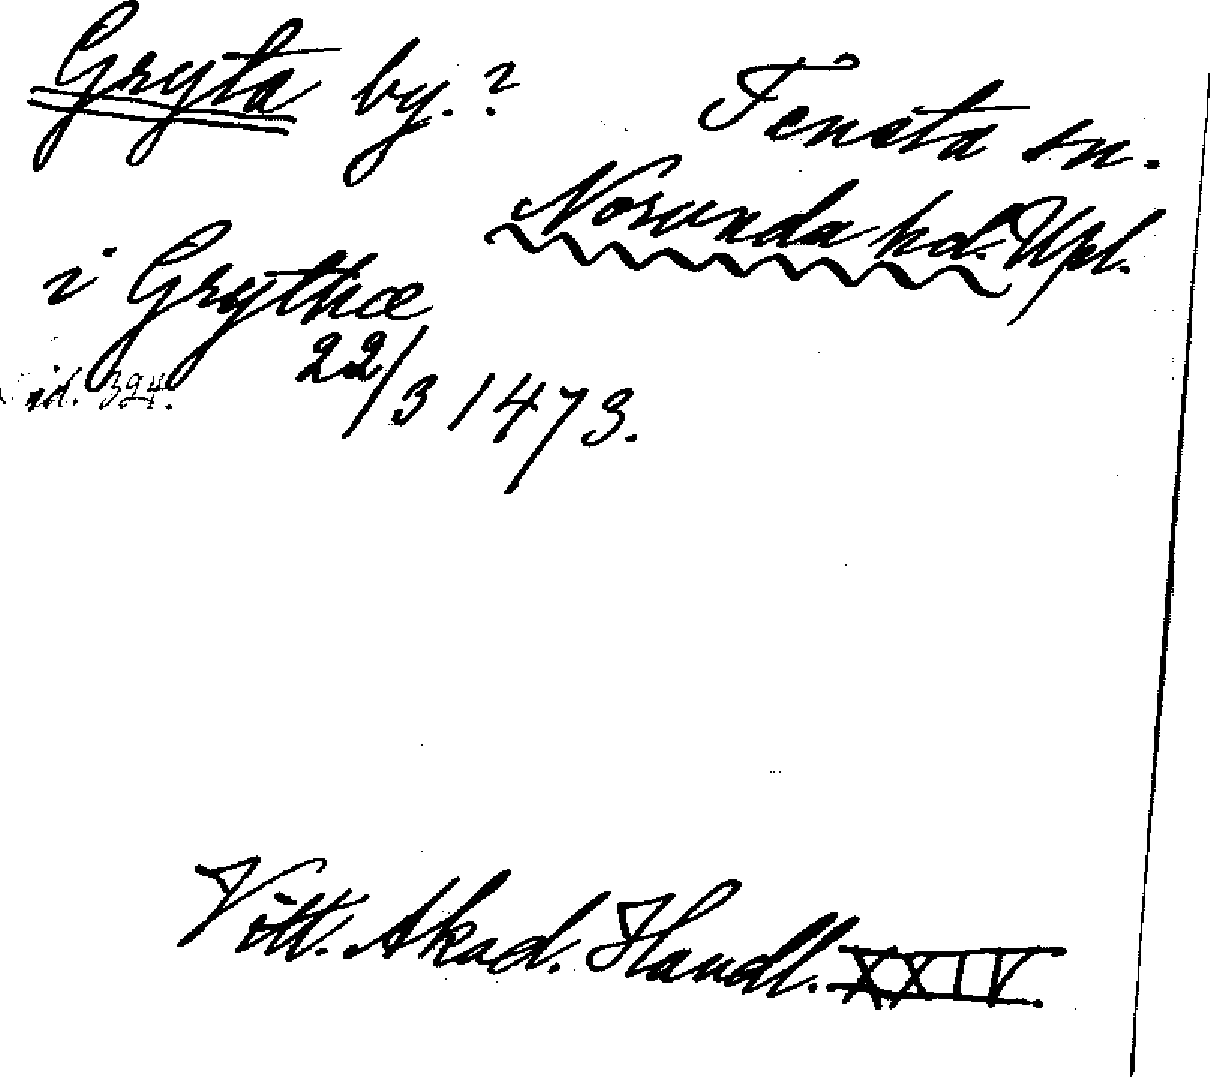 Gryta by.?
Tensta sn.
Norunda hd. Upl.
i Grythæ
22/3 1473.
sid. 394.
Vitt. Akad. Handl. XXIV.